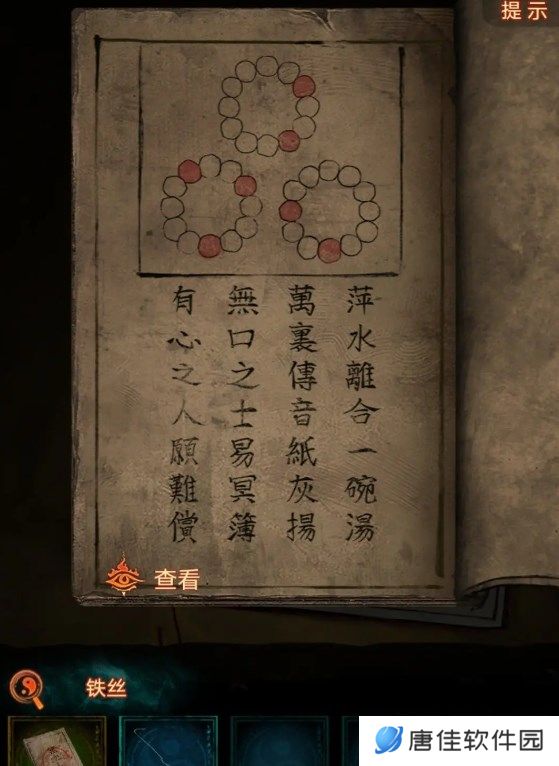 提示
萍水離合一碗湯
萬裏傳音紙灰揚
無口之士易冥簿
有心之人願難償
查看
铁丝
唐佳软件园